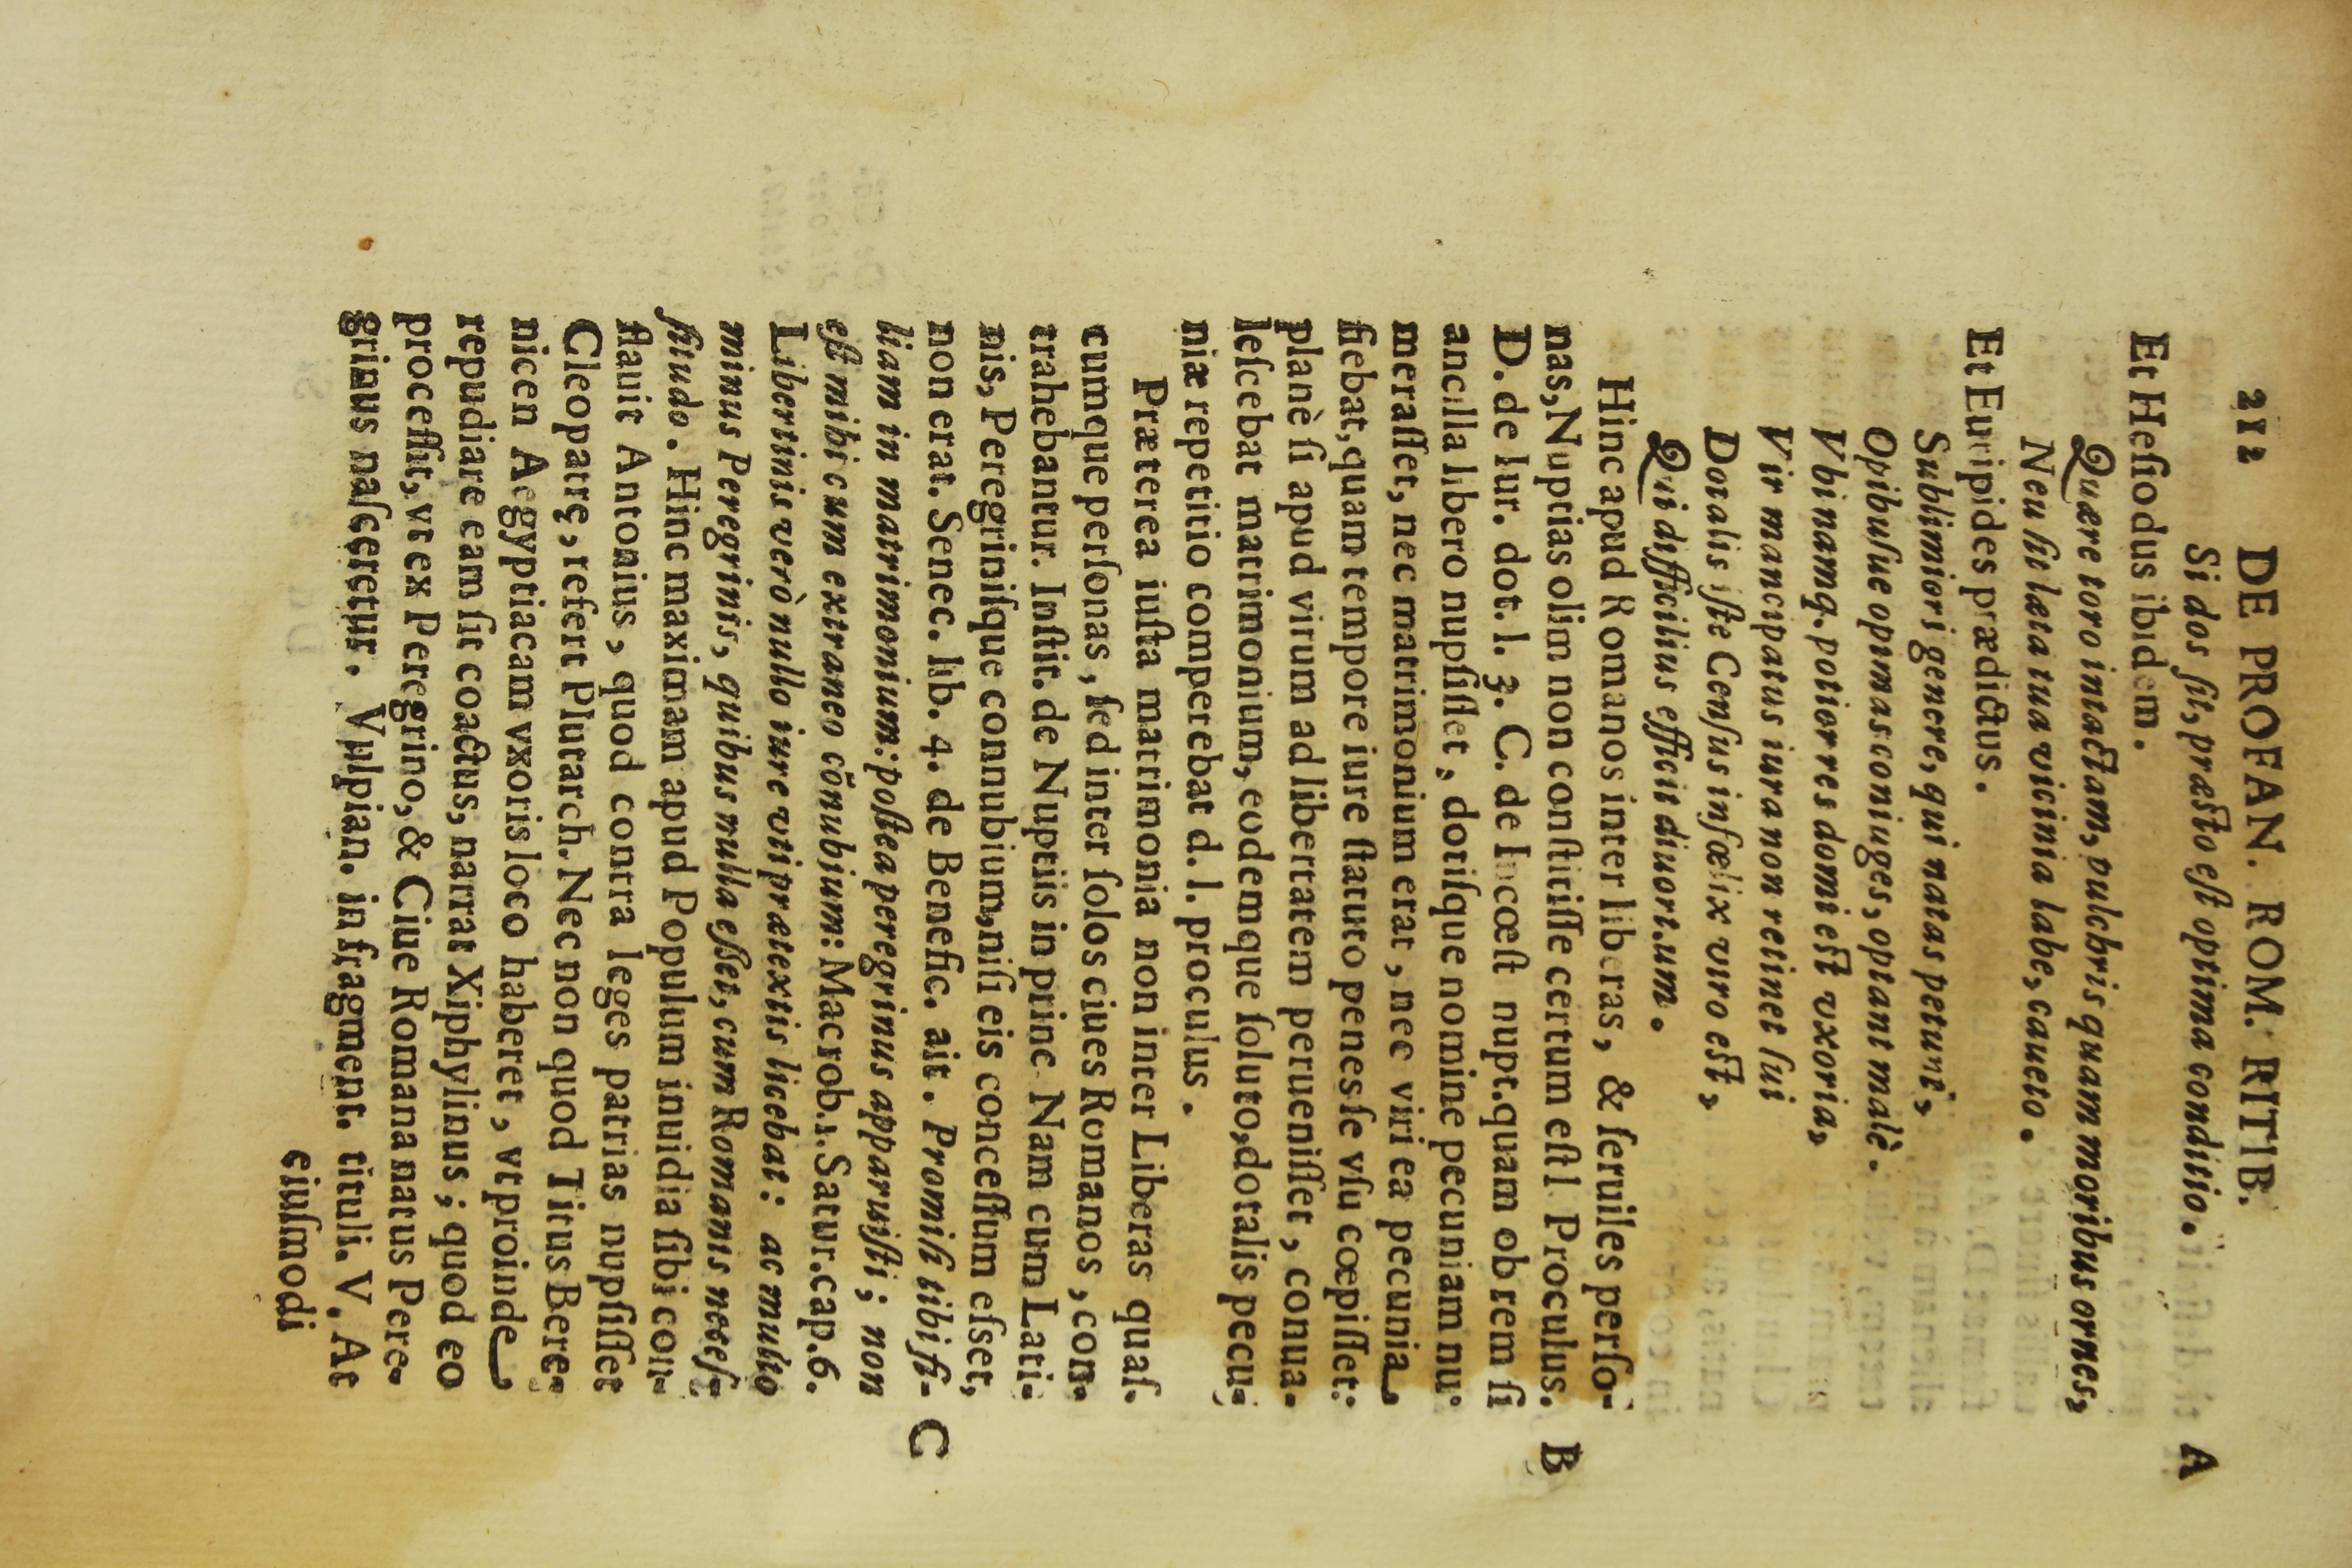 212 DE PROFAN. ROM. RITIB.
Si dos ſit, præſto eſt optima conditio. A
Et Heſiodus ibidem.
Quære toro intactam, pulchris quam moribus ornes,
Neu ſit læta tua vicinia labe, caueto.
Et Euripides prædictus.
Sublimiori genere, qui natas petunt,
Opibuſue opimas coniuges, optant malè.
Vbi namq. potior res domi eſt vxoria,
Vir mancipatus iura non retinet ſui
Dotalis iſte Cenſus infœlix viro eſt,
Qui difficilius efficit diuortium.
Hinc apud Romanos inter liberas, & ſeruiles perſo-
nas, Nuptias olim non conſtitiſſe certum eſt l Proculus. B
D. de Iur. dot. l. 3. C. de Incœſt nupt. quam ob rem ſi
ancilla libero nupſiſſet, dotiſque nomine pecuniam nu-
meraſſet, nec matrimonium erat, nec viri ea pecunia
fiebat, quam tempore iure ſtatuto penes ſe vſu cœpiſſet:
planè ſi apud virum ad libertatem perueniſſet, conua-
leſcebat matrimonium, eodemque ſoluto, dotalis pecu-
niæ repetitio comperebat d. l. proculus.
Præterea iuſta matrimonia non inter Liberas quaſ-
cumque perſonas, ſed inter ſolos ciues Romanos, con-
trahebantur. Inſtit. de Nuptiis in princ Nam cum Lati-
nis, Peregriniſque connubium, niſi eis conceſſum eſset,
non erat. Senec. lib. 4. de Benefic. ait. Promiſi tibi fi- C
liam in matrimonium: poſtea peregrinus apparuiſti; non
eſt mihi cum extraneo cōnubium: Macrob. 1. Satur. cap. 6.
Libertinis verò nullo iure vti prætextis licebat: ac multo
minus Peregrinis, quibus nulla eſſet, cum Romanis neceſ-
ſitudo. Hinc maximam apud Populum inuidia ſibi con-
flauit Antonius, quod contra leges patrias nupſiſſet
Cleopatrę, refert Plutarch. Nec non quod Titus Bere-
nicen Aegyptiacam vxoris loco haberet, vt proinde
repudiare eam ſit coactus, narrat Xiphylinus; quod eo
proceſſit, vt ex Peregrino, & Ciue Romana natus Pere-
grinus naſceretur. Vulpian. in fragment. tituli. V. At
eiuſmodi